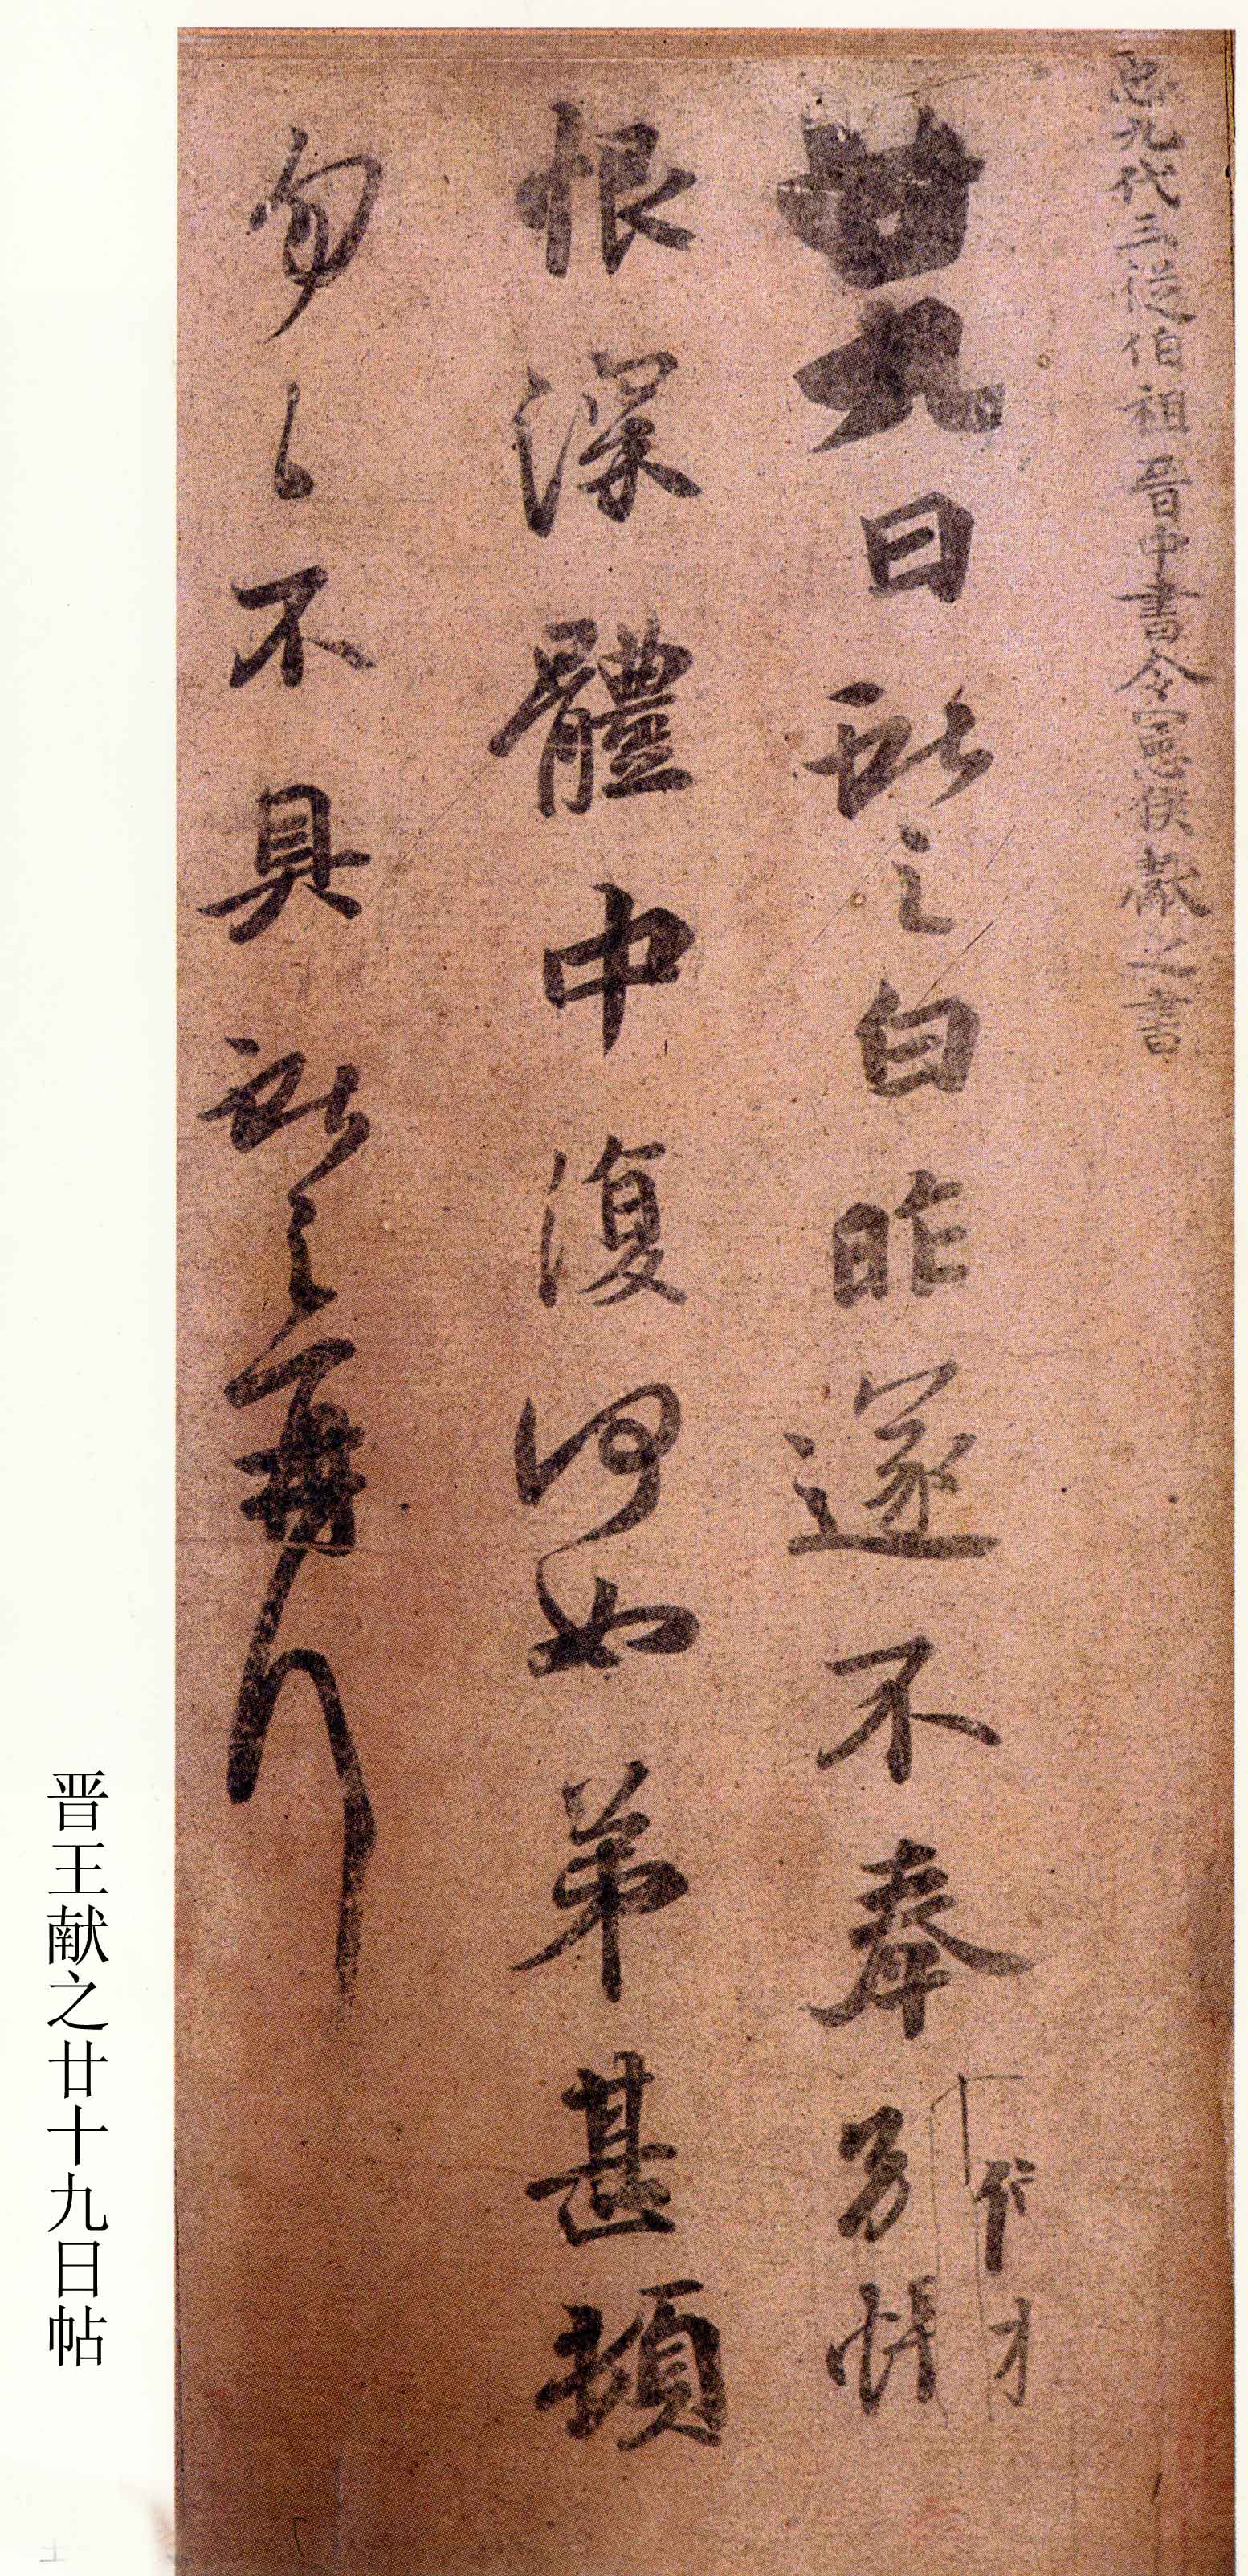 臣九代三從伯祖晉中書令憲侯獻之書
廿九日獻之白昨遂不奉別悵
恨深體中復何如弟甚頓
匆匆不具獻之再拜
晋王献之廿十九日帖